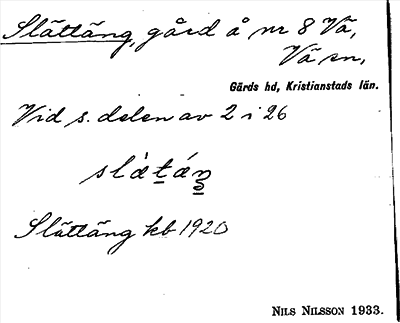 Slättäng, gård å nr 8 Vä,
Vä sn,
Gärds hd, Kristianstads län.
Vid s. delen av 2 i 26
Slättäng kb 1920
NILS NILSSON 1933.